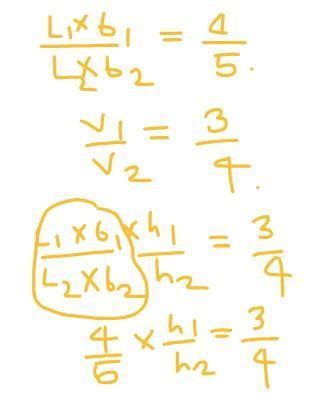 L₁×b₁ / L₂×b₂ = 4/5.
V₁/V₂ = 3/4.
L₁×b₁/L₂×b₂ × h₁/h₂ = 3/4
4/5 × h₁/h₂ = 3/4